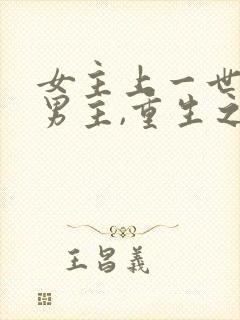 女主上一世
男主,重生之
王昌義